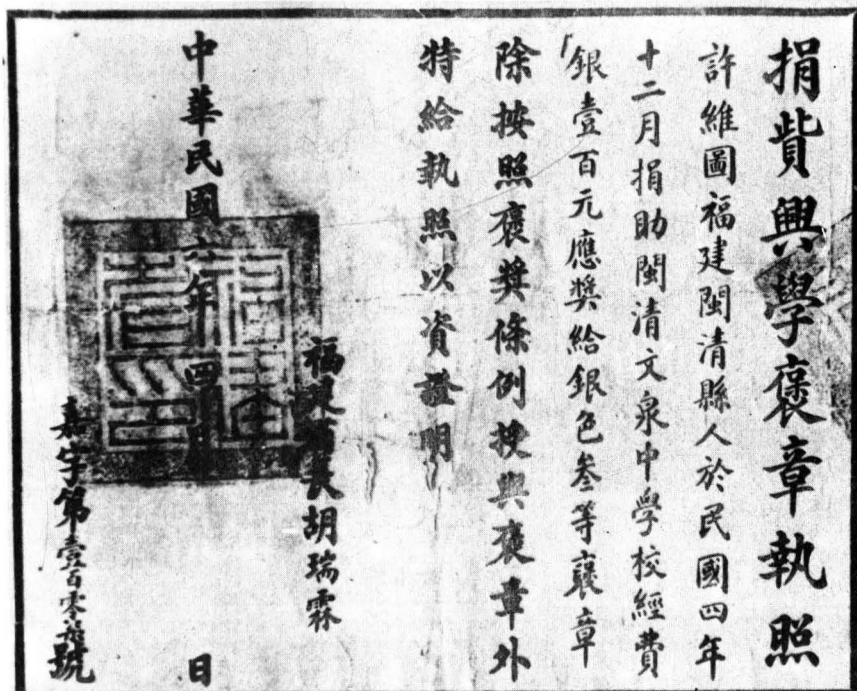 捐貲興學褒章執照
許維圖福建閩清縣人於民國四年
十二月捐助閩清文泉中學校經費
銀壹百元應獎給銀色叁等褒章
除按照褒獎條例授與褒章外
特給執照以資證明
福建省長胡瑞霖
中華民國六年四月 日
嘉字第壹百零 號
福建省長之印